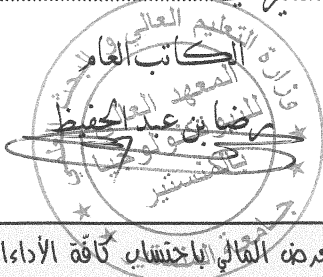 الكاتب العام
رضا بن عبد الحفيظ
وزارة التعليم العالي و
المعهد العا
بالمنستير
جامعة
العرض المالي باحتساب كافّة الأداءا